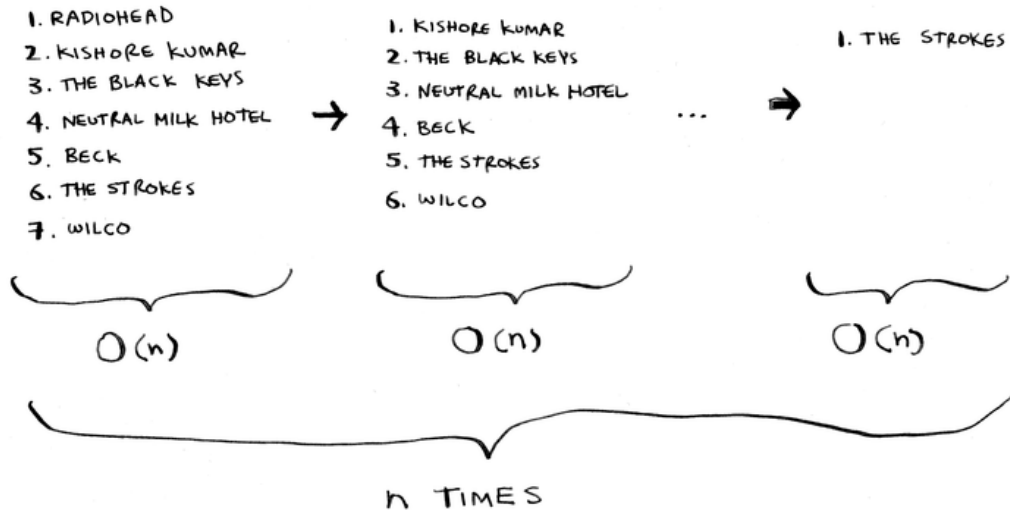 1. RADIOHEAD
2. KISHORE KUMAR
3. THE BLACK KEYS
4. NEUTRAL MILK HOTEL
5. BECK
6. THE STROKES
7. WILCO
→
1. KISHORE KUMAR
2. THE BLACK KEYS
3. NEUTRAL MILK HOTEL
4. BECK
5. THE STROKES
6. WILCO
... →
1. THE STROKES
O(n)
O(n)
O(n)
n TIMES